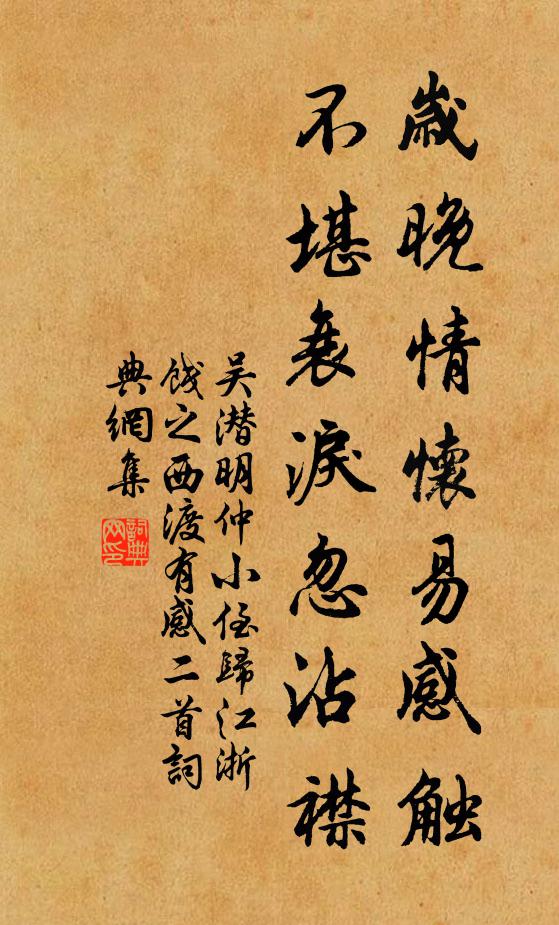 歲晚情懷易感触
不堪衰淚忽沾襟
吴潛明仲小侄歸江浙
餞之西渡有感二首詞
典網集
詞典网印